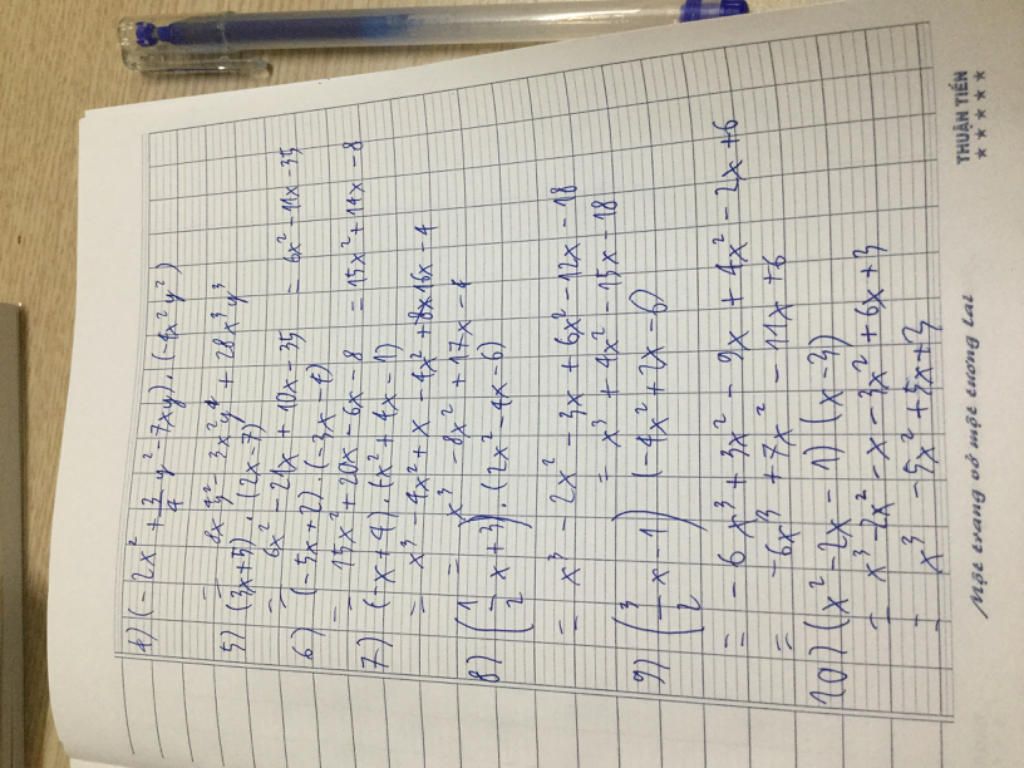 4) (-2x² + 3/4 y² - 7xy) . (-4x²y²)
= 8x⁴y² - 3x²y⁴ + 28x³y³
5) (3x+5) . (2x-7)
= 6x² - 21x + 10x - 35 = 6x² - 11x - 35
6) (-5x+2) . (-3x-4)
= 15x² + 20x - 6x - 8 = 15x² + 14x - 8
7) (-x+4) . (x² + 4x - 1)
= x³ - 4x² + x - 4x² + 8x16x - 4
= x³ - 8x² + 17x - 4
8) (1/2 x + 3) . (2x² - 4x - 6)
= x³ - 2x² - 3x + 6x² - 12x - 18
= x³ + 4x² - 15x - 18
9) (3/2 x - 1) (-4x² + 2x - 6)
= -6x³ + 3x² - 9x + 4x² - 2x + 6
= -6x³ + 7x² - 11x + 6
10) (x² - 2x - 1) (x - 3)
= x³ - 2x² - x - 3x² + 6x + 3
= x³ - 5x² + 5x + 3
Một trang vở một tương lai
THUẬN TIẾN
★ ★ ★ ★ ★